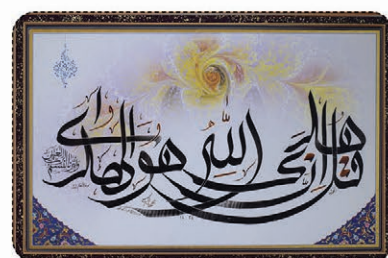 قل ان هدی الله هو الهدی